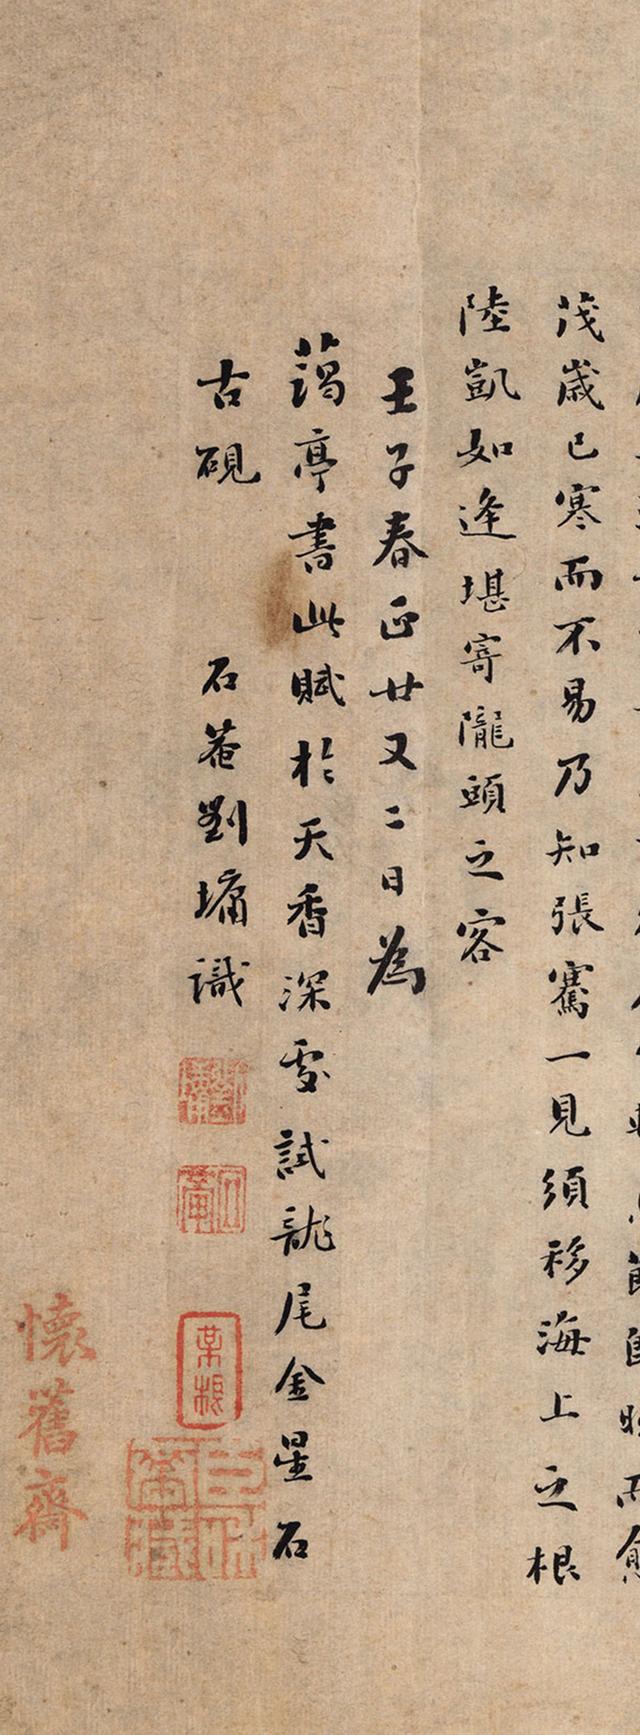 茂歲已寒而不易乃知張騫一見須移海上之根
陸凱如逢堪寄隴頭之客
壬子春正廿又二日為
藹亭書此賦於天香深處試龍尾金星石
古硯
石菴劉墉識
懷舊齋